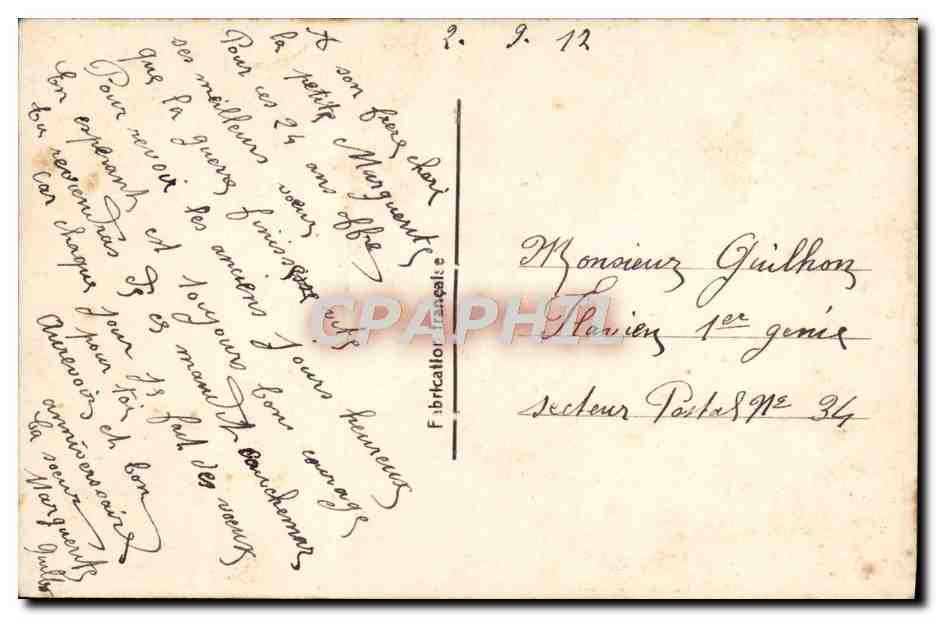 2. 9. 12
A son frère chéri
la petite Marguerite
Pour ces 24 ans offre
ses meilleurs voeux
que la guerre finisse vite
Pour revoir les anciens jours heureux
En espérant est toujours bon courage
tu reviendras de ce maudit cauchemar
car chaque jour je fait des voeux
pour toi
Aurevoir et bon
anniversaire
ta soeur
Marguerite
Guilhon
Fabrication française
CPAPHIL
Monsieur Guilhon
Flavien 1er génie
secteur Postal Ne 34